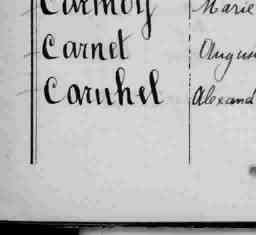 Carmoy Marie
Carnet Augus
Caruhel Alexand